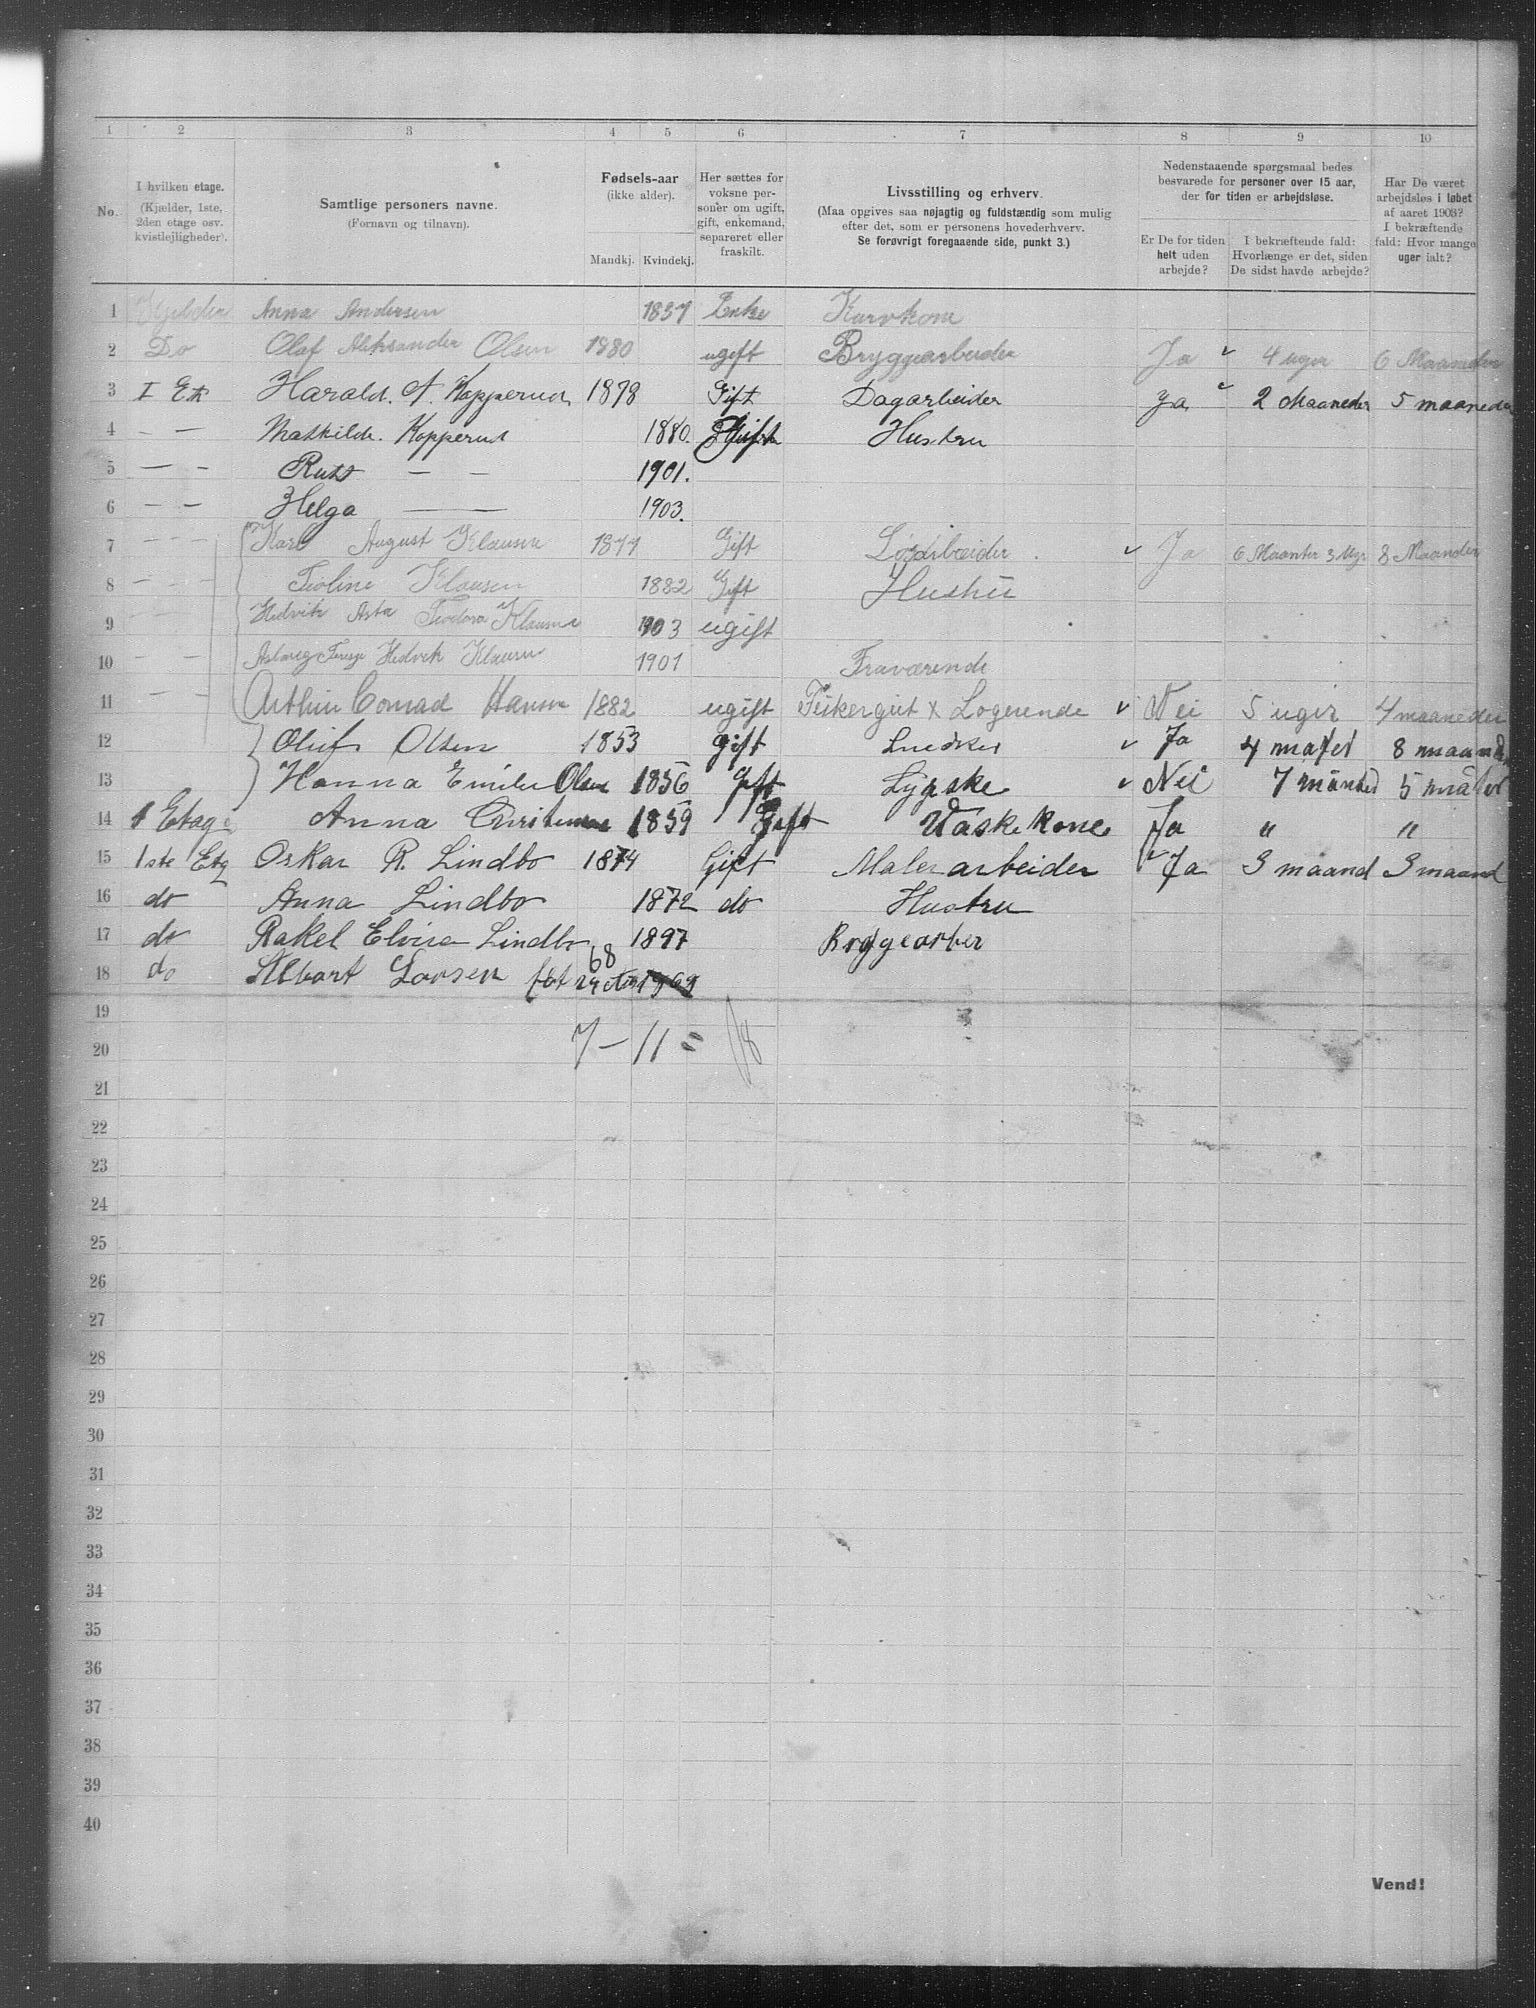 1 2 3 4 5 6 7 8 9 10
No.
I hvilken etage.
(Kjælder, 1ste,
2den etage osv.
kvistlejligheder).
Samtlige personers navne.
(Fornavn og tilnavn).
Fødsels-aar
(ikke alder).
Mandkj. Kvindekj.
Her sættes for
voksne per-
soner om ugift,
gift, enkemand,
separeret eller
fraskilt.
Livsstilling og erhverv.
(Maa opgives saa nøjagtig og fuldstændig som mulig
efter det, som er personens hovederhverv.
Se forøvrigt foregaaende side, punkt 3.)
Nedenstaaende spørgsmaal bedes
besvarede for personer over 15 aar,
der for tiden er arbejdsløse.
Er De for tiden
helt uden
arbejde?
I bekræftende fald:
Hvorlænge er det, siden
De sidst havde arbejde?
Har De været
arbejdsløs i løbet
af aaret 1903?
I bekræftende
fald: Hvor mange
uger ialt?
1 Kjelder Anna Andersen 1837 Enke Karvkone
2 Do Olaf Aleksander Olsen 1880 ugeft Bryggearbeider Ja 4 uger 6 Maaneder
3 I Et Harald. A. Kopperud 1878 Gift Dagarbeider Ja 2 Maaneder 5 maaneder
4 — — Mathilde. Kopperud 1880. Gift Hustru
5 — — Rut — — 1901.
6 — — Helga — 1903.
7 — — Karl August Klausen Gift Ja 6 Maanter 3 Ugr 8 Maander
8 — — Teoline Klausen 1882 Gift Hustru
9 — — Hedvik Asta Teodora Klausen 1903 ugift
10 — — Hedvik Klausen 1901 Fraværende
11 — — Arthur Conrad Hansen 1882 ugift x Logerende Nei 5 uger 4 maaneder
12 Oluf Olsen 1853 gift Snedker Ja 4 8
13 Hanna Emilie Olsen 1856 gift Nei 7 5
14 1 Etage Anna 1859 Gift Vaske Kone Ja " "
15 1ste Etg Oskar R. Lindbo 1874 Gift Malerarbeider Ja 3 maand 3 maand
16 do Anna Lindbo 1872 do Hustru
17 do Rakel Elvira Lindbo 1897 Bryggearber
18 do Albart Larsen født 68
19
20 7 — 11 = 18
21
22
23
24
25
26
27
28
29
30
31
32
33
34
35
36
37
38
39
40
Vend!